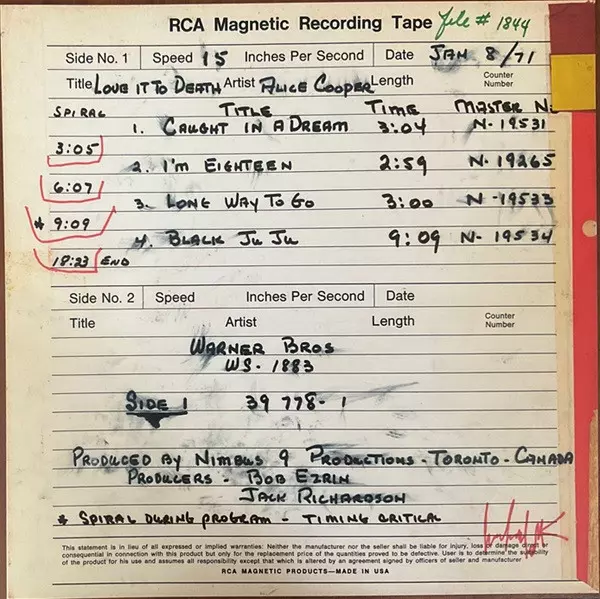 RCA Magnetic Recording Tape file # 1844
Side No. 1 Speed 15 Inches Per Second Date JAN 8/71
Title LOVE IT TO DEATH Artist ALICE COOPER Length Counter Number
SPIRAL TITLE TIME MASTER No
1. CAUGHT IN A DREAM 3:04 N-19531
3:05
2. I'm EIGHTEEN 2:59 N-19265
6:07
3. LONG WAY TO GO 3:00 N-19533
* 9:09
4. BLACK JU JU 9:09 N-19534
18:23 END
Side No. 2 Speed Inches Per Second Date
Title Artist Length Counter Number
WARNER BROS
WS-1883
SIDE 1 39 778-1
PRODUCED BY NIMBUS 9 PRODUCTIONS-TORONTO-CANADA
PRODUCERS - BOB EZRIN
JACK RICHARDSON
* SPIRAL DURING PROGRAM - TIMING CRITICAL
This statement is in lieu of all expressed or implied warranties: Neither the manufacturer nor the seller shall be liable for injury, loss or damage direct or
consequential in connection with this product but only for the replacement price of the quantities proved to be defective. User is to determine the suitability
of the product for his use and assumes all responsibility except that which is altered by an agreement signed by officers of seller and manufacturer
RCA MAGNETIC PRODUCTS—MADE IN USA